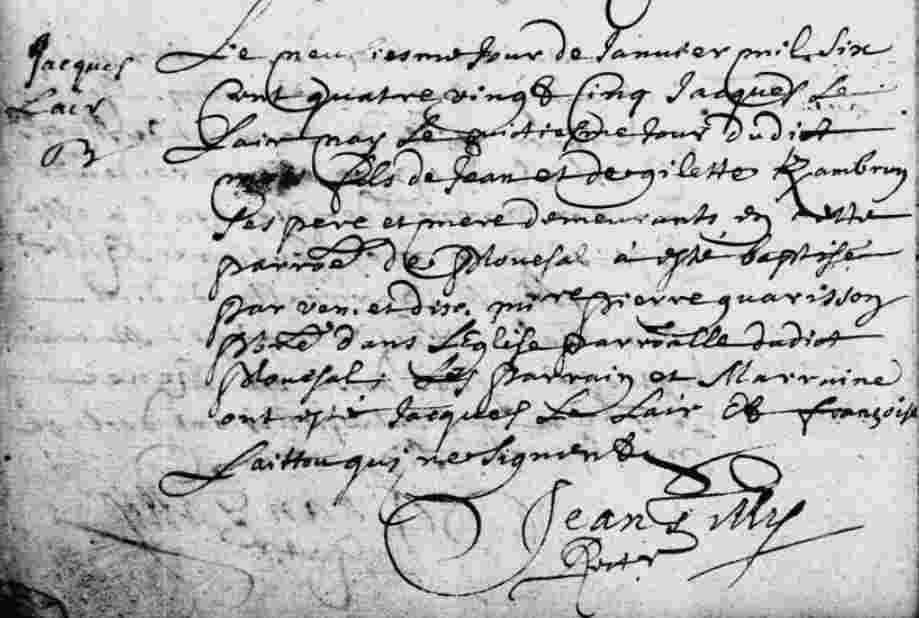 Jacques
Lair
B
Le neufiesme Jour de Janvier mil six
cent quatre vingt Cinq Jacques Le
Lair nay le huictiesme Jour dudict
mois fils de Jean et de gilette Rambrun
ses pere et mere demeurants en cette
parroē de Plouesal à esté baptisé
par ven. et dis. mire pierre quarisson
pbre dans L'Eglise parroālle dudict
Plouesal, Les Parrain et Marraine
ont esté Jacques Le Lair Et françoise
Laittou qui ne signent
Jean Gilly
Recteur